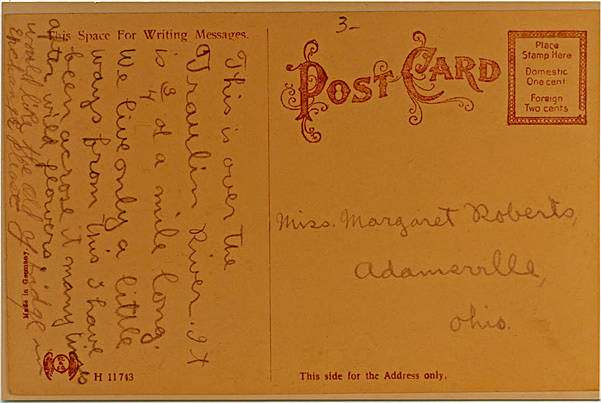 This Space For Writing Messages.
This is over the
Traulin River. It
is 3/4 of a mile long.
We live only a little
ways from this I have
been acrose it many
after wild flowers,
would like
Made in Germany.
H 11743
3-
POST CARD
Place
Stamp Here
Domestic
One cent
Foreign
Two cents
Miss. Margaret Roberts,
Adamsville,
Ohio.
This side for the Address only.